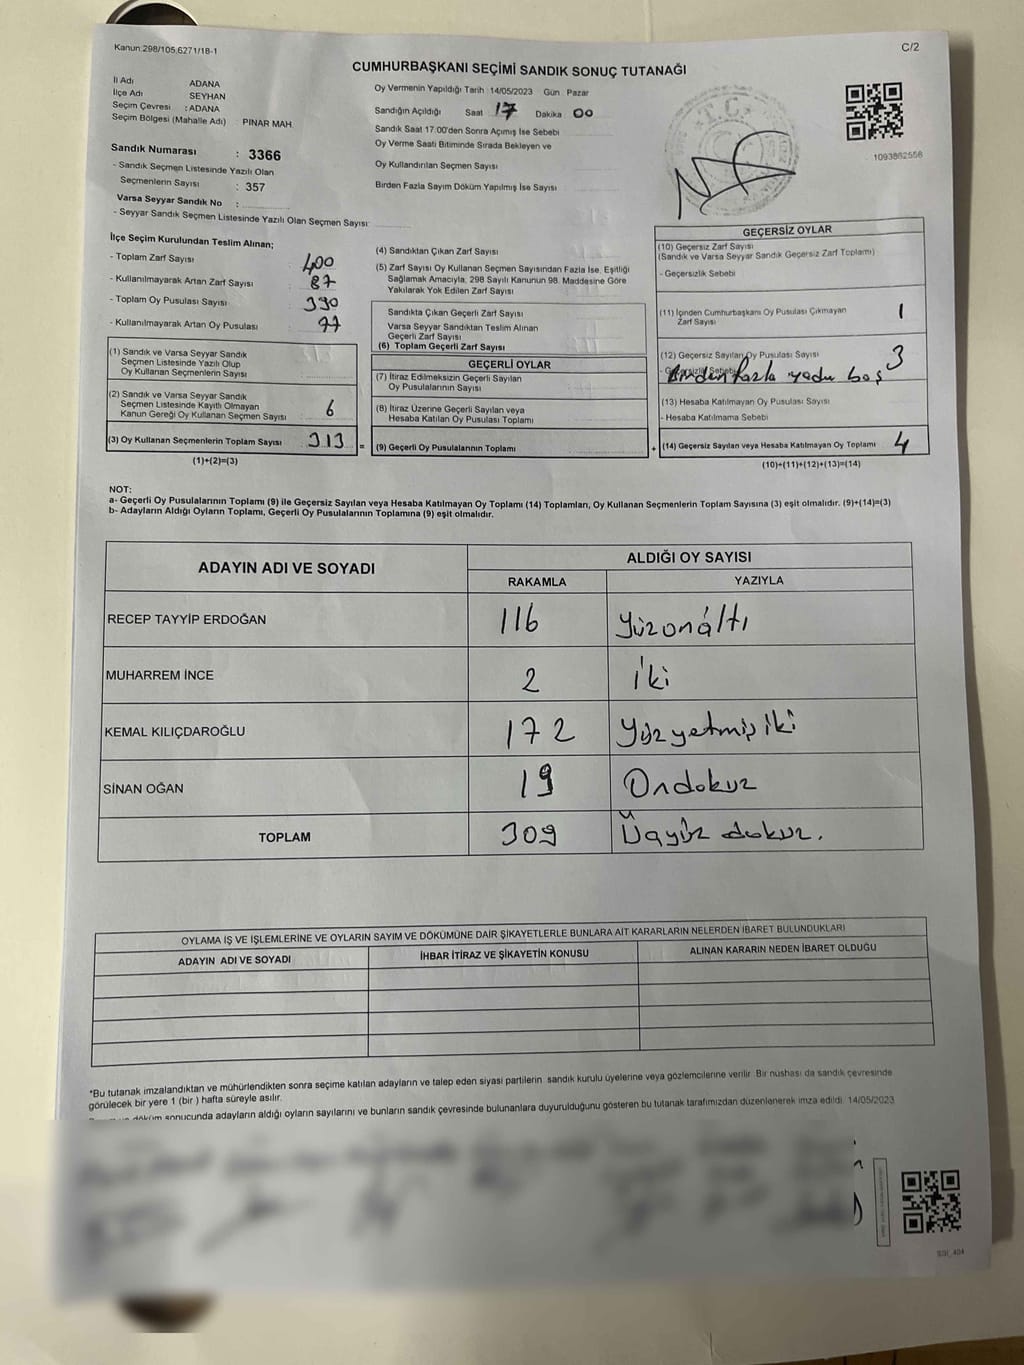 Kanun:298/105,6271/18-1
C/2
CUMHURBAŞKANI SEÇİMİ SANDIK SONUÇ TUTANAĞI
İl Adı ADANA
İlçe Adı SEYHAN
Seçim Çevresi : ADANA
Seçim Bölgesi (Mahalle Adı) PINAR MAH.
Sandık Numarası : 3366
- Sandık Seçmen Listesinde Yazılı Olan
Seçmenlerin Sayısı : 357
Varsa Seyyar Sandık No :
- Seyyar Sandık Seçmen Listesinde Yazılı Olan Seçmen Sayısı:
Oy Vermenin Yapıldığı Tarih 14/05/2023 Gün Pazar
Sandığın Açıldığı Saat 17 Dakika 00
Sandık Saat 17:00'den Sonra Açımış İse Sebebi
Oy Verme Saati Bitiminde Sırada Bekleyen ve
Oy Kullandırılan Seçmen Sayısı
Birden Fazla Sayım Döküm Yapılmış İse Sayısı
T.C.
1093862556
İlçe Seçim Kurulundan Teslim Alınan;
- Toplam Zarf Sayısı : 400
- Kullanılmayarak Artan Zarf Sayısı : 87
- Toplam Oy Pusulası Sayısı : 390
- Kullanılmayarak Artan Oy Pusulası : 77
(1) Sandık ve Varsa Seyyar Sandık
Seçmen Listesinde Yazılı Olup
Oy Kullanan Seçmenlerin Sayısı
(2) Sandık ve Varsa Seyyar Sandık
Seçmen Listesinde Kayıtlı Olmayan
Kanun Gereği Oy Kullanan Seçmen Sayısı : 6
(3) Oy Kullanan Seçmenlerin Toplam Sayısı : 313
(1)+(2)=(3)
=
(4) Sandıktan Çıkan Zarf Sayısı
(5) Zarf Sayısı Oy Kullanan Seçmen Sayısından Fazla İse, Eşitliği
Sağlamak Amacıyla, 298 Sayılı Kanunun 98. Maddesine Göre
Yakılarak Yok Edilen Zarf Sayısı
Sandıkta Çıkan Geçerli Zarf Sayısı
Varsa Seyyar Sandıktan Teslim Alınan
Geçerli Zarf Sayısı
(6) Toplam Geçerli Zarf Sayısı
GEÇERLİ OYLAR
(7) İtiraz Edilmeksizin Geçerli Sayılan
Oy Pusulalarının Sayısı
(8) İtiraz Üzerine Geçerli Sayılan veya
Hesaba Katılan Oy Pusulası Toplamı
(9) Geçerli Oy Pusulalarının Toplamı
+
GEÇERSİZ OYLAR
(10) Geçersiz Zarf Sayısı
(Sandık ve Varsa Seyyar Sandık Geçersiz Zarf Toplamı)
- Geçersizlik Sebebi
(11) İçinden Cumhurbaşkanı Oy Pusulası Çıkmayan
Zarf Sayısı 1
(12) Geçersiz Sayılan Oy Pusulası Sayısı 3
- Geçersizlik Sebebi Birden fazla yada boş
(13) Hesaba Katılmayan Oy Pusulası Sayısı
- Hesaba Katılmama Sebebi
(14) Geçersiz Sayılan veya Hesaba Katılmayan Oy Toplamı 4
(10)+(11)+(12)+(13)=(14)
NOT:
a- Geçerli Oy Pusulalarının Toplamı (9) ile Geçersiz Sayılan veya Hesaba Katılmayan Oy Toplamı (14) Toplamları, Oy Kullanan Seçmenlerin Toplam Sayısına (3) eşit olmalıdır. (9)+(14)=(3)
b- Adayların Aldığı Oyların Toplamı, Geçerli Oy Pusulalarının Toplamına (9) eşit olmalıdır.
ADAYIN ADI VE SOYADI
ALDIĞI OY SAYISI
RAKAMLA YAZIYLA
RECEP TAYYİP ERDOĞAN 116 Yüzonaltı
MUHARREM İNCE 2 İki
KEMAL KILIÇDAROĞLU 172 Yüzyetmişiki
SİNAN OĞAN 19 Ondokuz
TOPLAM 309 Üçyüz dokuz.
OYLAMA İŞ VE İŞLEMLERİNE VE OYLARIN SAYIM VE DÖKÜMÜNE DAİR ŞİKAYETLERLE BUNLARA AİT KARARLARIN NELERDEN İBARET BULUNDUKLARI
ADAYIN ADI VE SOYADI İHBAR İTİRAZ VE ŞİKAYETİN KONUSU ALINAN KARARIN NEDEN İBARET OLDUĞU
*Bu tutanak imzalandıktan ve mühürlendikten sonra seçime katılan adayların ve talep eden siyasi partilerin sandık kurulu üyelerine veya gözlemcilerine verilir. Bir nüshası da sandık çevresinde
görülecek bir yere 1 (bir) hafta süreyle asılır.
döküm sonucunda adayların aldığı oyların sayılarını ve bunların sandık çevresinde bulunanlara duyurulduğunu gösteren bu tutanak tarafımızdan düzenlenerek imza edildi. 14/05/2023